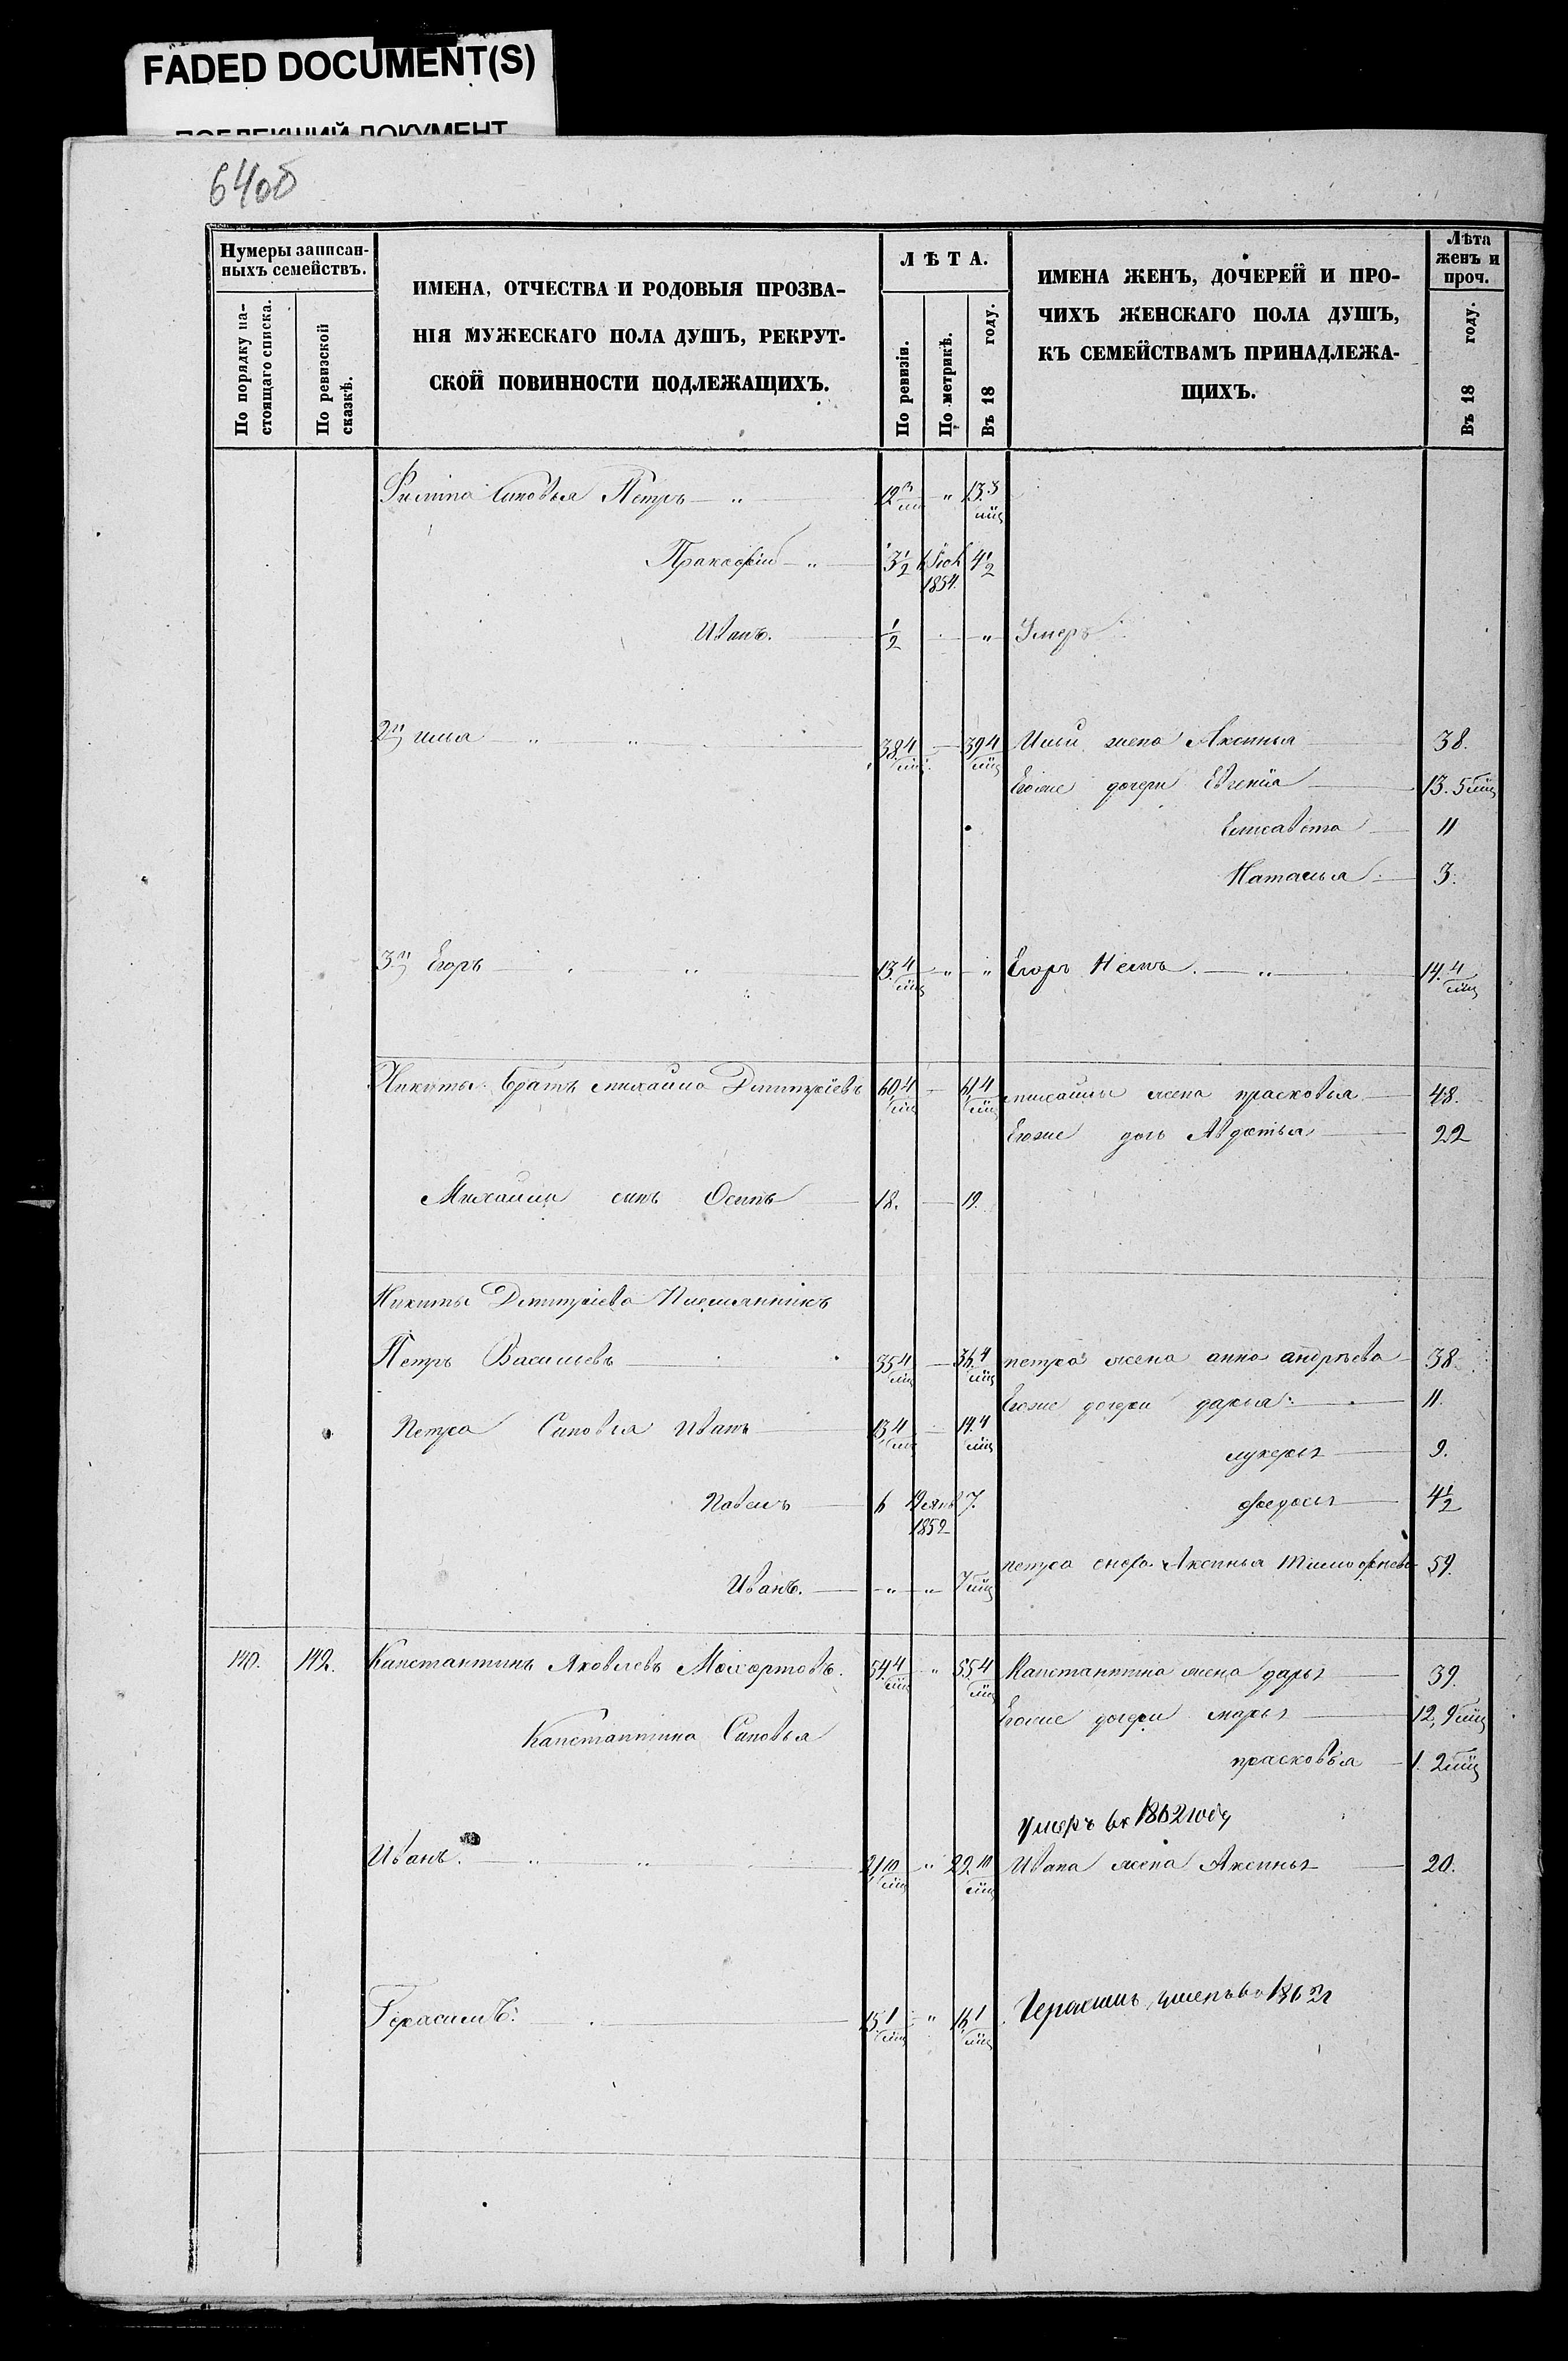 FADED DOCUMENT(S)
ПОБЛЕКШИЙ ДОКУМЕНТ
64об
Нумеры записан-
ныхъ семействъ.
По порядку на-
стоящаго списка.
По ревизской
сказкѣ.
ИМЕНА, ОТЧЕСТВА И РОДОВЫЯ ПРОЗВА-
НІЯ МУЖЕСКАГО ПОЛА ДУШЪ, РЕКРУТ-
СКОЙ ПОВИННОСТИ ПОДЛЕЖАЩИХЪ.
ЛѢТА.
По ревизіи.
По метрикѣ.
Въ 18 году.
ИМЕНА ЖЕНЪ, ДОЧЕРЕЙ И ПРО-
ЧИХЪ ЖЕНСКАГО ПОЛА ДУШЪ,
КЪ СЕМЕЙСТВАМЪ ПРИНАДЛЕЖА-
ЩИХЪ.
Лѣта
женъ и
проч.
Въ 18 году.
Синовья Петръ — " 12 3/мц " 13. 3/мц
Пракофій — " 3 1/2 1854. 4 1/2
Иванъ. 1/2 " Умеръ
2й илья " " 38 4/мц — 39 4/мц Ильи жена Аксинья 38.
Егоже дочери Евгенія 13. 5 мц
Елисавета 11
Наталья 3.
3й Егоръ " 13. 4/мц " " Егоръ " 14. 4/мц
Никиты братъ михайла Дмитріевъ 60 4/мц — 61 4/мц михайлы жена прасковья 48.
Егоже доч Авдотья 22
Михайлы синъ Осипъ 18. — 19.
Никиты Дмитріева Племянникъ
Петръ Васильевъ 35 4/мц — 36. 4/мц петра жена анна андрѣева 38
Егоже дочери дарья 11.
Петра Синовья Иванъ 13 4/мц — 14. 4/мц
лукерья 9.
Павелъ 6 1852 7.
федосья 4 1/2
петра снеха Аксинья Тимофѣева 59.
Иванъ. " " 7 мц
140. 142. Канстантинъ Яковлевъ 54 4/мц " 55 4/мц Канстантина жена дарья 39.
Егоже дочери марья 12, 9 мц
Канстантина Синовья
прасковья 1. 2 мц
умеръ въ 1862 году
Иванъ. " " 21 10/мц " 22. 10/мц Ивана жена Аксинья 20.
Герасимъ. 15 1/мц " 16 1/мц Герасимъ умеръ в 1862